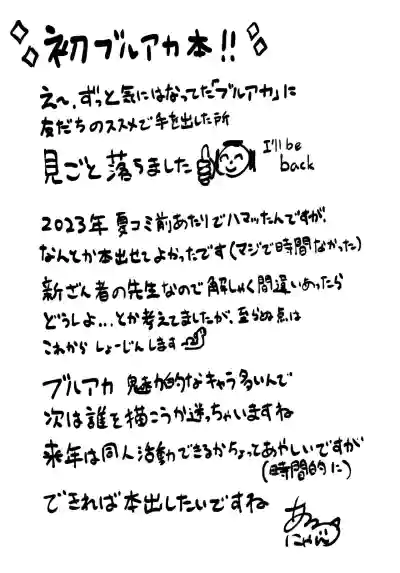 初ブルアカ本!!
え〜、ずっと気にはなってた「ブルアカ」に
友だちのススメで手を出した所
見ごと落ちました
I'll be
back
2023年夏コミ前あたりでハマッたんですが、
なんとか本出せてよかったです(マジで時間なかった)
新ざん者の先生なので解しゃく間違いあったら
どうしよ...とか考えてましたが、至らぬ点は
これからしょーじんします
ブルアカ 魅力的なキャラ多いんで
次は誰を描こうか迷っちゃいますね
来年は同人活動できるかちょってあやしいですが
(時間的に)
できれば本出したいですね